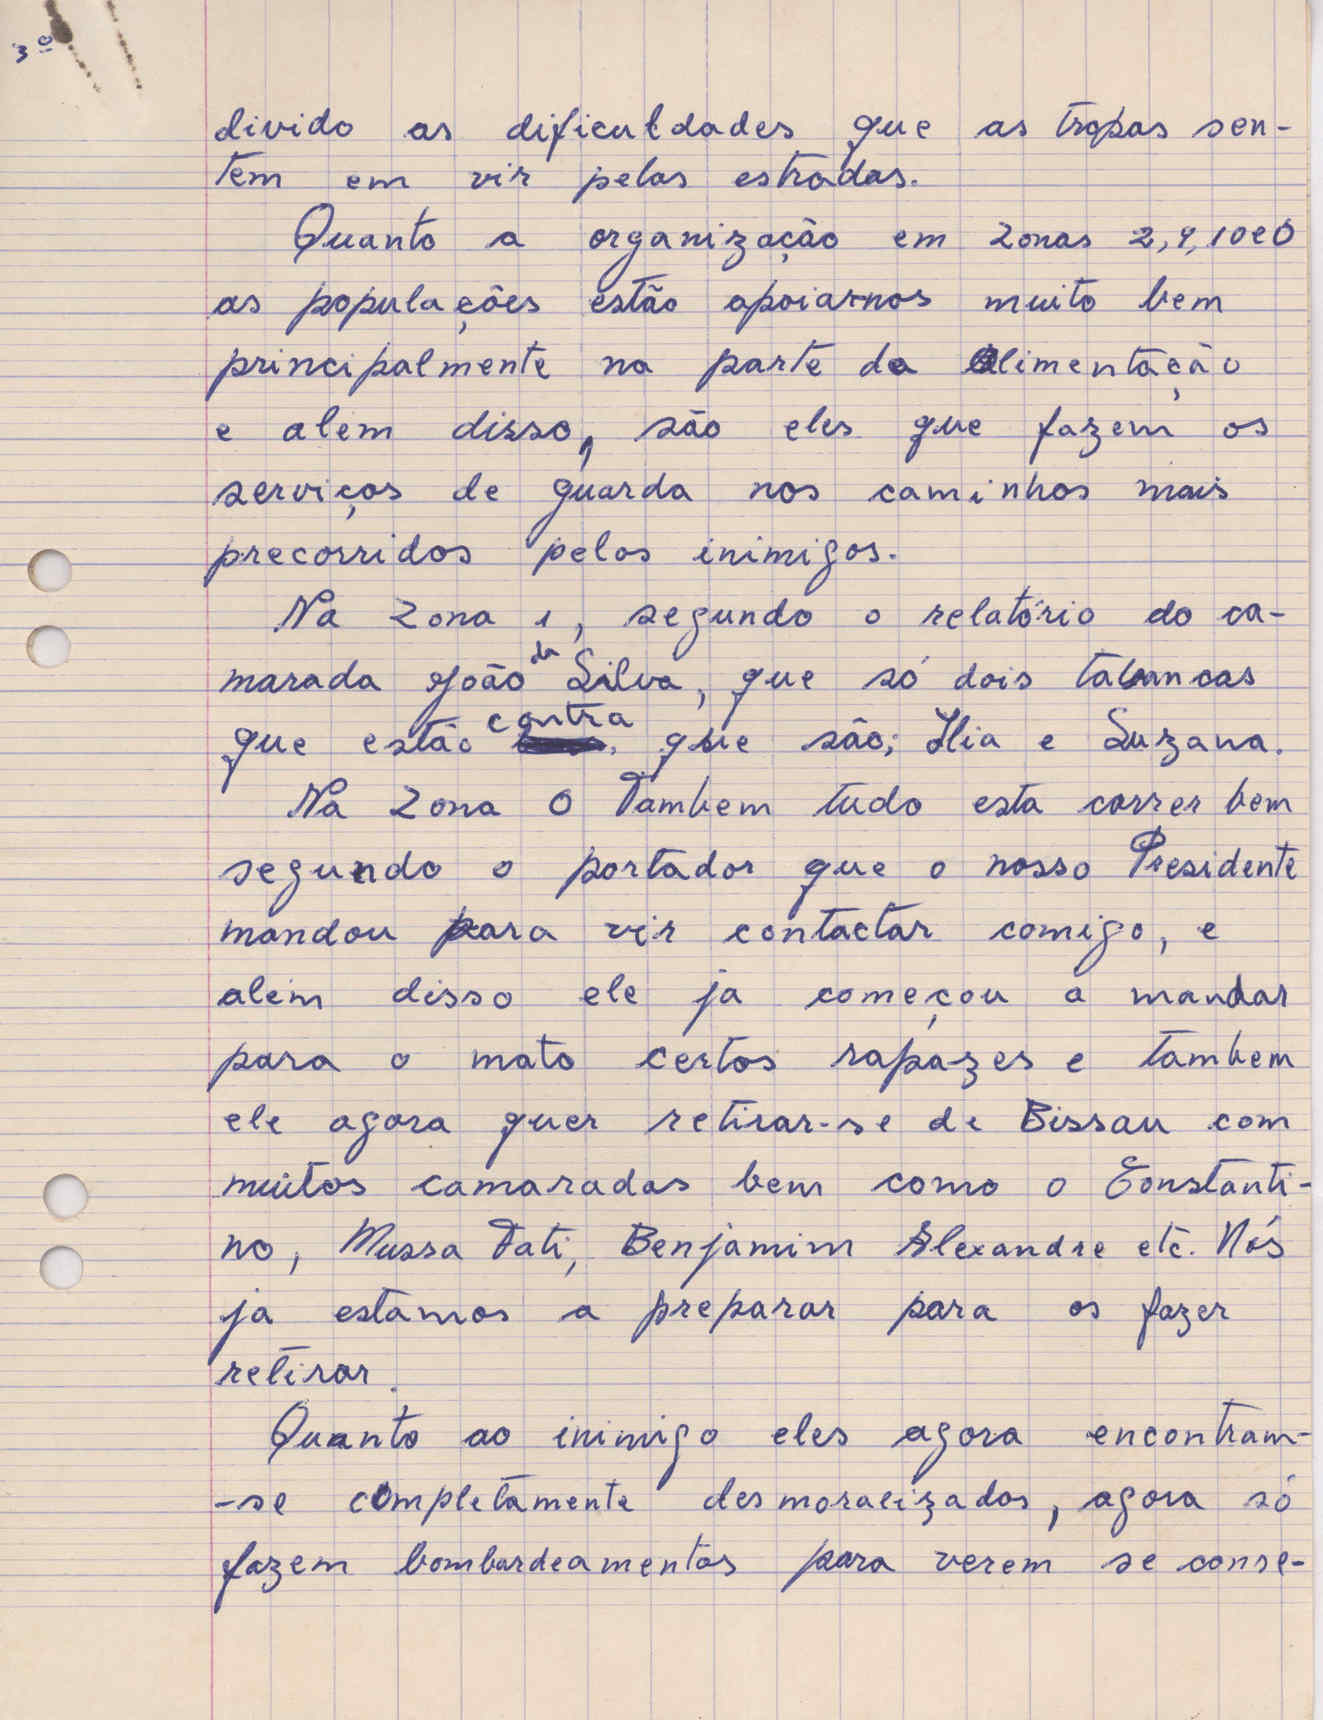 3º
divido as dificuldades que as tropas sen-
tem em vir pelas estradas.
Quanto a organização em zonas 2, 9, 10 e 0
as populações estão apoiar-nos muito bem
principalmente na parte da Alimentação
e alem disso, são eles que fazem os
serviços de guarda nos caminhos mais
precorridos pelos inimigos.
Na Zona 1, segundo o relatório do ca-
marada João da Silva, que só dois tabancas
que estão contra, que são; Ilia e Suzana.
Na Zona O Tambem tudo esta correr bem
segundo o portador que o nosso Presidente
mandou para vir contactar comigo, e
alem disso ele ja começou a mandar
para o mato certos rapazes e tambem
ele agora quer retirar-se de Bissau com
muitos camaradas bem como o Constanti-
no, Mussa Fati, Benjamim Alexandre etc. Nós
ja estamos a preparar para os fazer
retirar.
Quanto ao inimigo eles agora encontram-
-se completamente desmoralizados, agora só
fazem bombardeamentos para verem se conse-